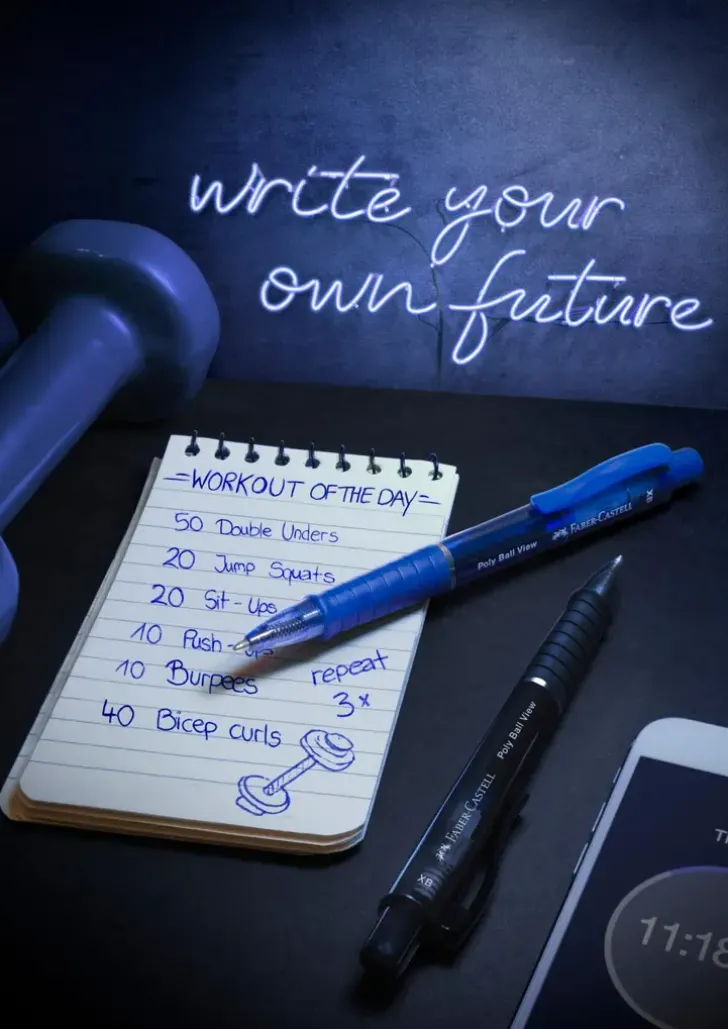 write your
own future
=WORKOUT OF THE DAY=
50 Double Unders
20 Jump Squats
20 Sit-Ups
10 Push-ups
10 Burpees
40 Bicep curls
repeat
3x
Poly Ball View FABER-CASTELL XB
XB FABER-CASTELL Poly Ball View
11:18